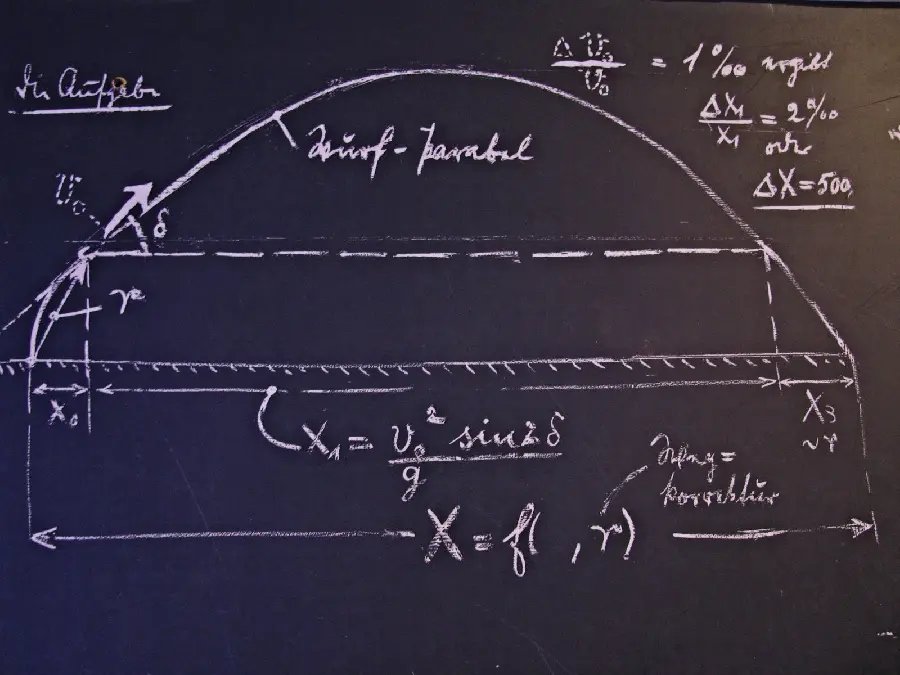 Die Aufgabe
Δ v₀ / v₀ = 1 ‰ ergibt
Δx₁ / x₁ = 2 ‰
oder
Δx = 500
Wurf-parabel
v₀
δ
r
x₀
x₁ = v₀² sin 2δ / g
x₃
~r
Weg=
korrektur
X = f( , r)